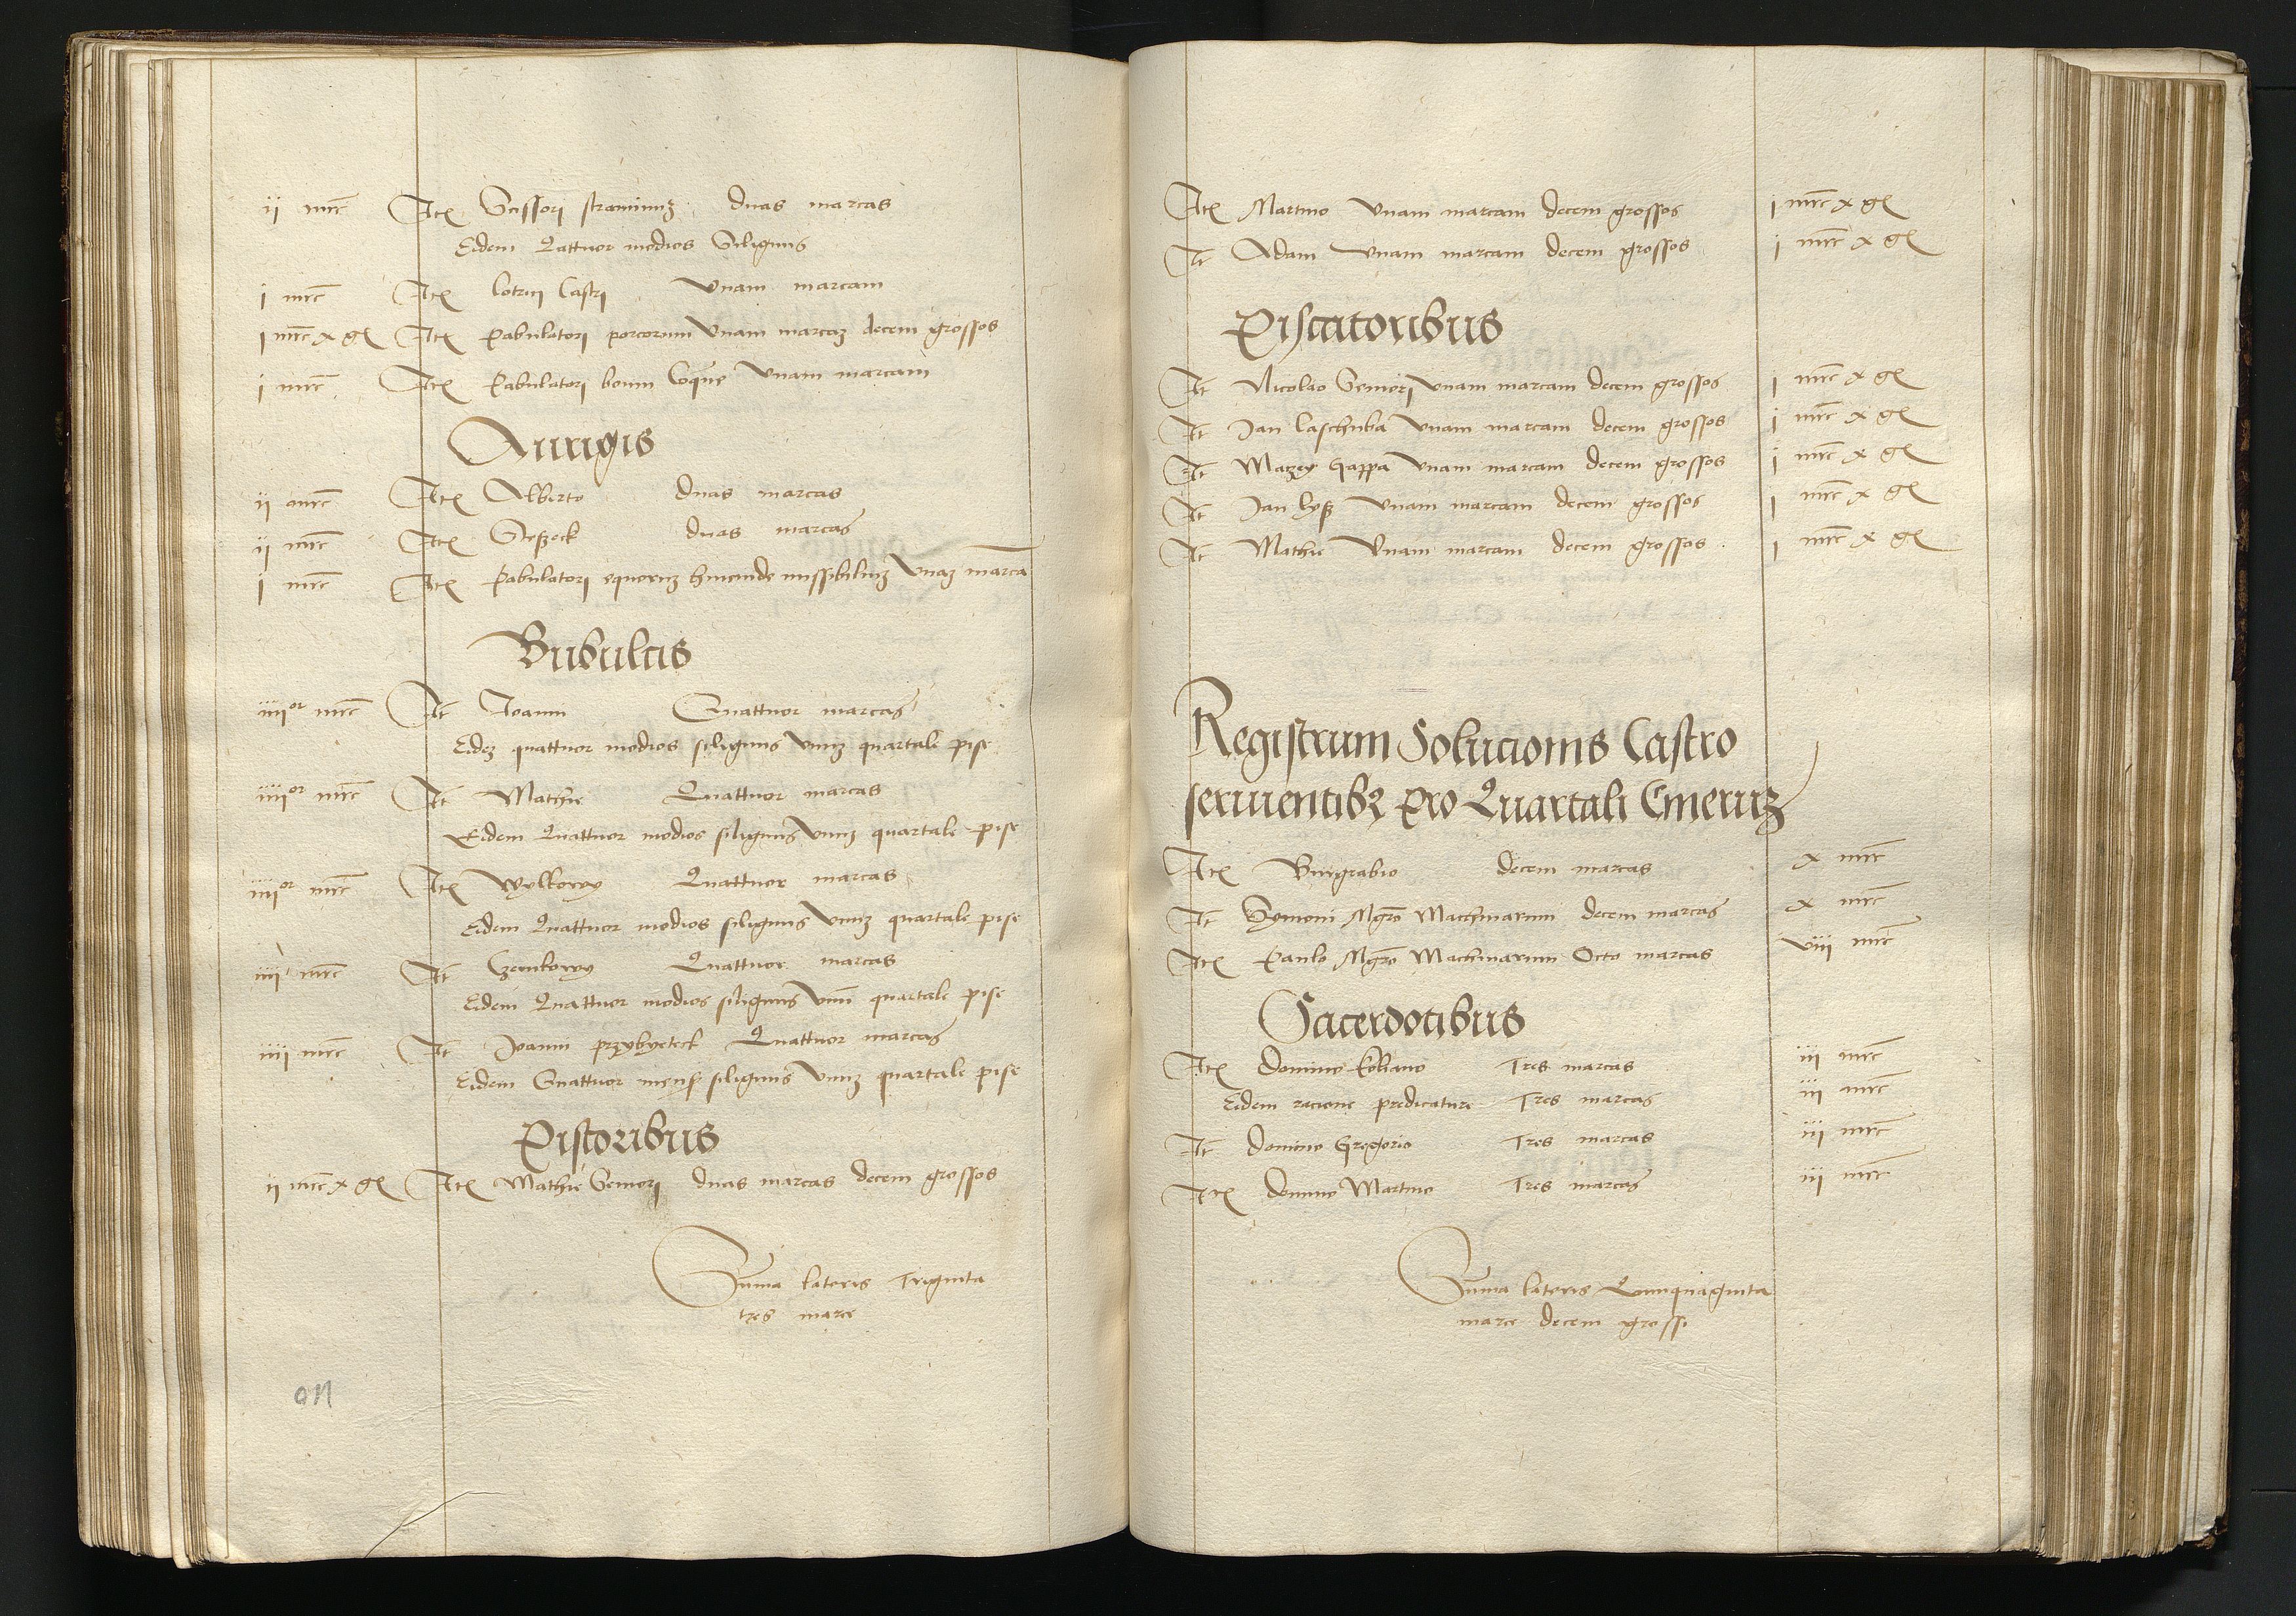 ij mrc Itē Scissori straminuȝ duas marcas
Eidem Quattuor modios Siliginis
j mrc Itē lotrici Castri Vnam marcam
j mrc x gȓ Itē Pabulatori porcorum Vnam marcaȝ decem grossos
j mrc Itē Pabulatori boum Coque Vnam marcam
Aurigis
ij mrc Itē Alberto duas marcas
ij mrc Itē duas marcas
j mrc Itē Pabulatori equoruȝ hincinde missibiliuȝ Vnaȝ marca
Bubulcis
iiijor mrc It Joanni Quattuor marcas
Eideȝ quattuor modios siliginis Vnuȝ quartale pise
iiijor mrc It Mathie Quattuor marcas
Eidem Quattuor modios siliginis Vnuȝ quartale pise
iiijor mrc Itē Wylkowy Quattuor marcas
Eidem Quattuor modios siliginis Vnuȝ quartale pise
iiij mrc It Czenkowy Quattuor marcas
Eidem Quattuor modios siliginis Vnū quartale pise
iiij mrc It Joanni przybyeteck Quattuor marcas
Eidem Quattuor mens siliginis Vnuȝ quartale pise
Pistoribus
ij mrc x gȓ Itē Mathie Seniori duas marcas decem grossos
Suma lateris Triginta
tres marce
Itē Martino Vnam marcam decem grossos j mrc x gȓ
It Adam Vnam marcam decem grossos j mrc x gȓ
Piscatoribus
It Nicolao Seniori Vnam marcam decem grossos j mrc x gȓ
It Jan laschuba Vnam marcam decem grossos j mrc x gȓ
It Maczey Vnam marcam decem grossos j mrc x gȓ
It Jan lyss Vnam marcam decem grossos j mrc x gȓ
It Mathie Vnam marcam decem grossos j mrc x gȓ
Registrum Solucionis Castro
seruientibȝ Pro Quartali Cineruȝ
Itē Burgrabio decem marcas x mrc
It Symoni Mgro Machinarum decem marcas x mrc
Itē Paulo Mgro Machinarum Octo marcas viij mrc
Sacerdotibus
Itē Domino Tres marcas iij mrc
Eidem racione predicature Tres marcas iij mrc
It Domino Gregorio Tres marcas iij mrc
Itē Domino Martino Tres marcas iij mrc
Suma lateris Quinquaginta
marce decem grossi